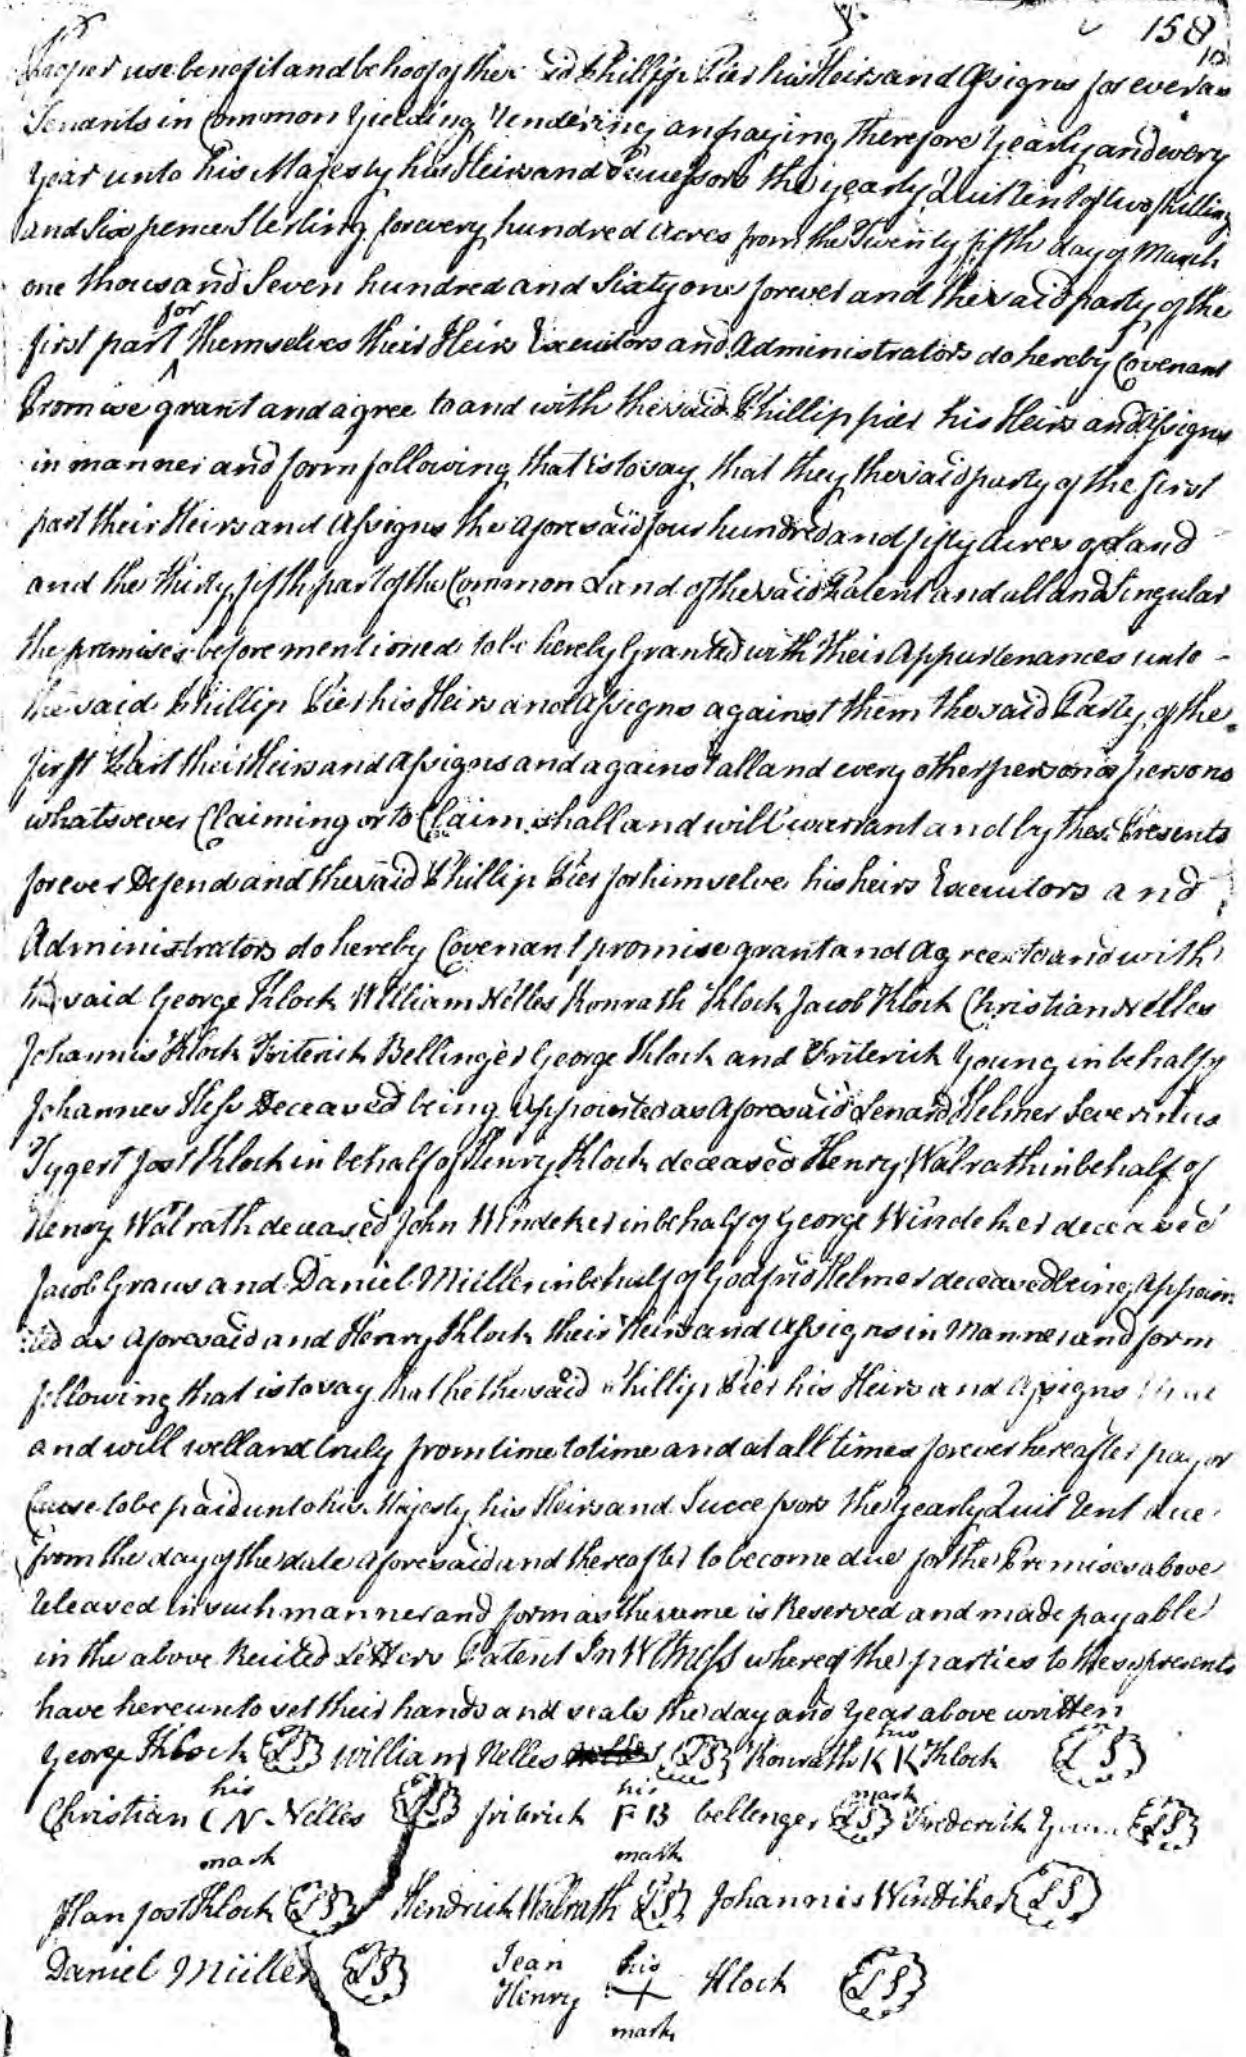 158
proper use benefit and behoof of the sd Phillip Pier his Heirs and Assigns for ever as
Tenants in Common Yielding rendering an paying therefore Yearly and every
Year unto his Majesty his Heirs and Successors the yearly Quit rent of two shilling
and Six pence Sterling for every hundred acres from the Twenty fifth day of March
one thousand Seven hundred and Sixty one forever and the said party of the
first part for themselves their Heirs Executors and Administrators do hereby Covenant
Promise grant and agree to and with the said Phillip pier his Heirs and Assigns
in manner and form following that is to say that they the said party of the first
part their Heirs and Assigns the aforesaid four hundred and fifty Acres of Land
and the thirty fifth part of the Common Land of the said Patent and all and Singular
the premises before mentioned to be hereby Granted with their Appurtenances unto -
the said Phillip Pier his Heirs and Assigns against them the said Party of the
first Part their Heirs and Assigns and against all and every other person or persons
whatsoever Claiming or to Claim shall and will warrant and by these Presents
forever Defend and the said Phillip Pier for himselve his heirs Executors and
Administrators do hereby Covenant promise grant and Agree to and with
the said George Klock William Nelles Konrath Klock Jacob Klock Christian Nelles
Johannis Klock Friterick Bellinger George Klock and Friterick Young in behalf of
Johannes Hess Deceased being Appointed as Aforesaid Lenard Helmer Severinus
Tygert Jost Klock in behalf of Henry Klock deceased Henry Walrath in behalf of
Henry Walrath deceased John Windeker in behalf of George Windeker deceased
Jacob Graus and Daniel Miller in behalf of Godfrid Helmer deceased being Appoin
ted as Aforesaid and Henry Klock their Heirs and Assigns in Manner and form
following that is to say that he the said Phillip Pier his Heirs and Assigns shall
and will well and truly from time to time and at all times forever hereafter pay or
Cause to be paid unto his Majesty his Heirs and Successors the Yearly Quit rent due
from the day of the date aforesaid and thereafter to become due for the Premises above
releaved in such manner and form as the same is Reserved and made payable
in the above Recited Letters Patent In Witness whereof the parties to these presents
have hereunto set their hands and seals the day and Year above written
George Klock LS William Nelles LS Konrath his K K mark Klock LS
Christian his C N mark Nelles LS friterick his F B mark bellenger LS Frederick Young LS
Han jost Klock LS Hendrick Walrath LS Johannis Windiker LS
Daniel Müller LS Jean Henry his + mark Klock LS